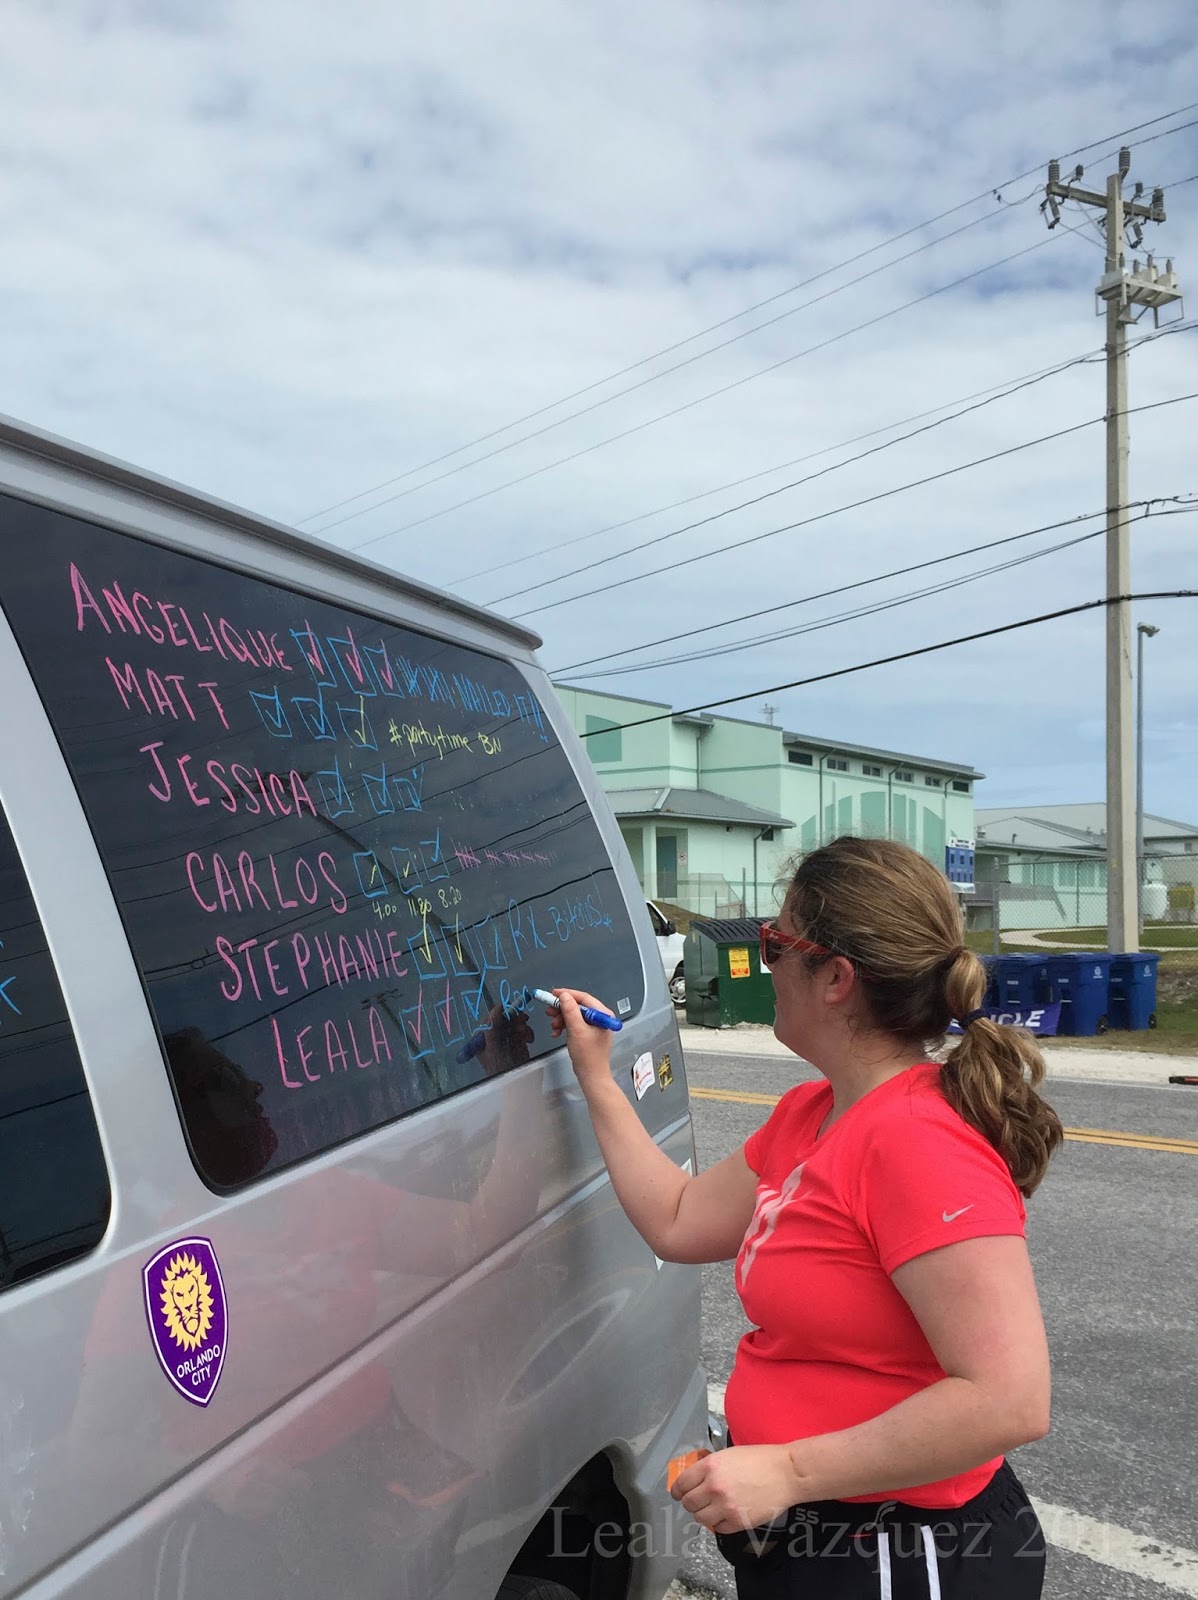 ANGELIQUE NAILED IT!!
MATT #partytime BN
JESSICA
CARLOS
4.00 11.80 8.20
STEPHANIE RX-Bitches!
LEALA Rag
ORLANDO
CITY
Leala Vazquez 201